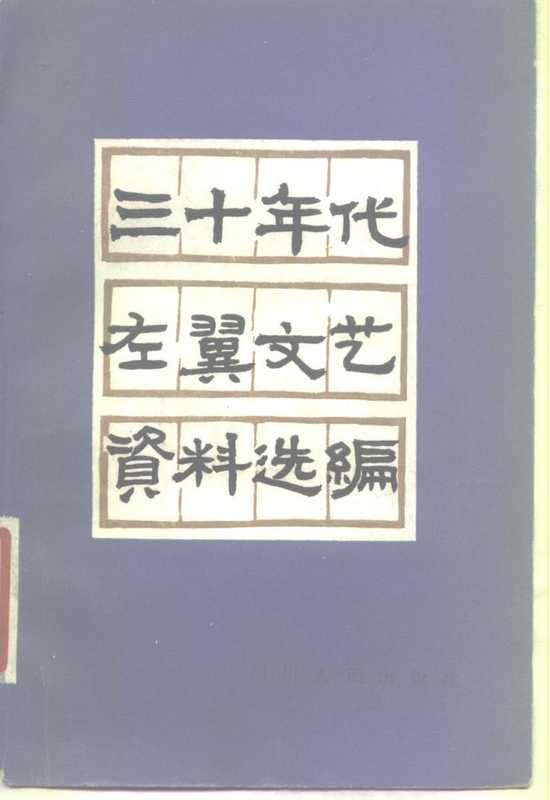 三十年代
左翼文艺
資料选編
四川人民出版社